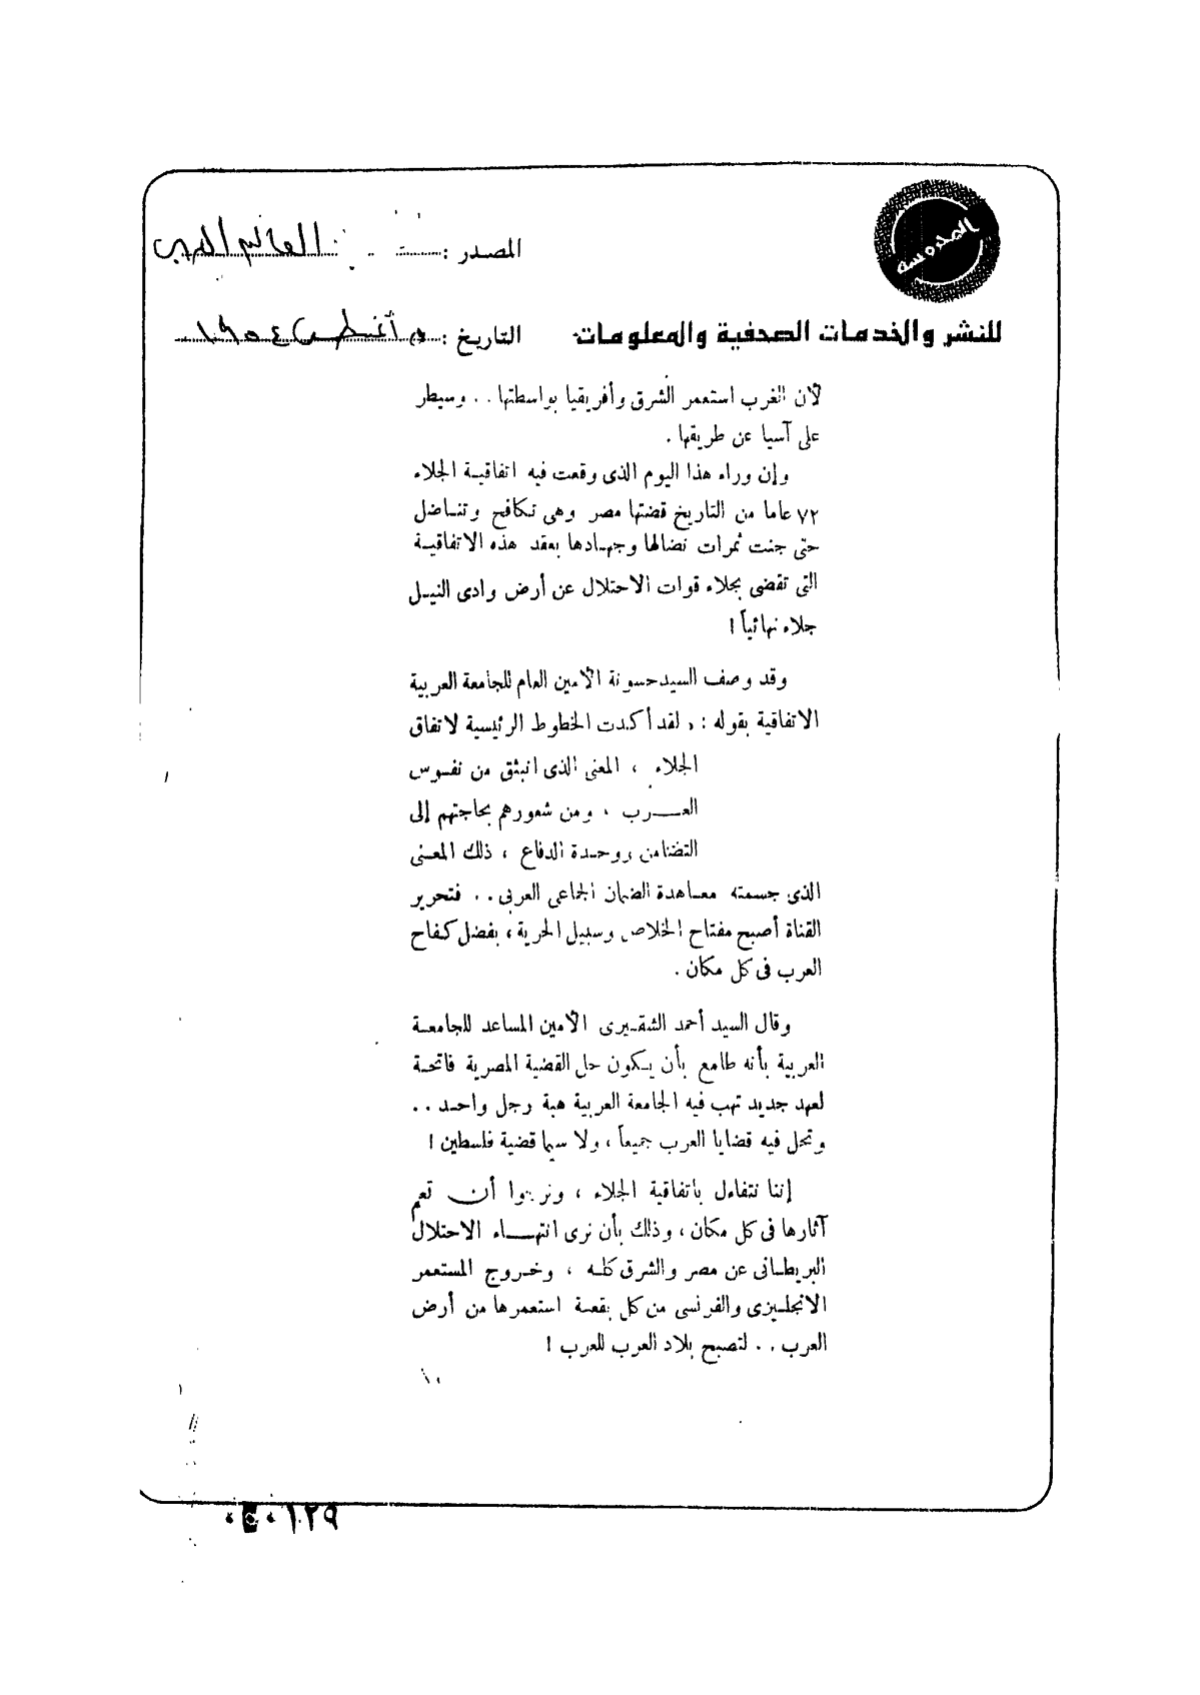 المحروسة
المصدر : العالم العربي
للنشر والخدمات الصحفية والمعلومات
التاريخ : أغسطس ١٩٥٤
لأن الغرب استعمر الشرق وأفريقيا بواسطتها . . وسيطر
على آسيا عن طريقها .
وإن وراء هذا اليوم الذى وقعت فيه اتفاقية الجلاء
٧٢ عاما من التاريخ قضتها مصر وهى تكافح وتناضل
حتى جنت ثمرات نضالها وجهادها بعقد هذه الاتفاقية
التى تقضى بجلاء قوات الاحتلال عن أرض وادى النيل
جلاء نهائياً !
وقد وصف السيد حسونة الأمين العام للجامعة العربية
الاتفاقية بقوله : « لقد أكدت الخطوط الرئيسية لاتفاق
الجلاء ، المعنى الذى انبثق من نفوس
العرب ، ومن شعورهم بحاجتهم إلى
التضامن ووحدة الدفاع ، ذلك المعنى
الذى جسمته معاهدة الضمان الجماعى العربى . . فتحرير
القناة أصبح مفتاح الخلاص وسبيل الحرية ، بفضل كفاح
العرب فى كل مكان .
وقال السيد أحمد الشقيرى الأمين المساعد للجامعة
العربية بأنه طامع بأن يكون حل القضية المصرية فاتحة
لعهد جديد تهب فيه الجامعة العربية هبة رجل واحد . .
وتحل فيه قضايا العرب جميعاً ، ولا سيما قضية فلسطين !
إننا نتفاءل باتفاقية الجلاء ، ونرجوا أن تعم
آثارها فى كل مكان ، وذلك بأن نرى انتهاء الاحتلال
البريطانى عن مصر والشرق كله ، وخروج المستعمر
الانجليزى والفرنسى من كل بقعة استعمرها من أرض
العرب . . لتصبح بلاد العرب للعرب !